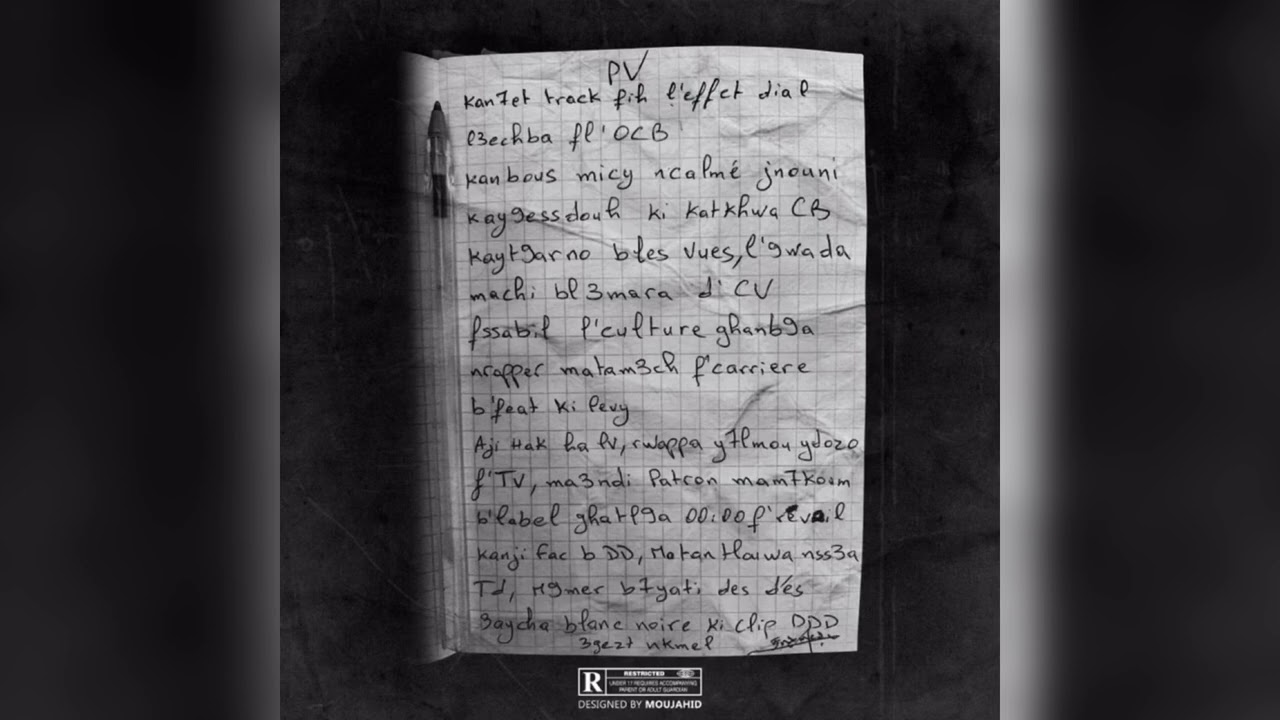 PV
Kan7et track fih l'effet dial
l3echba fl'OCB
kanbous micy ncalmé jnouni
kay9essdouh ki katkhwa CB
kayt9arno b les vues, l'9wada
machi bl3mara d'CV
fssabil l'culture ghanb9a
nrapper matam3ch f'carriere
b'feat ki levy
Aji Hak ha lV, rwappa y7lmou ydozo
f'TV, ma3ndi Patron mam7koum
b'label ghatl9a 00:00 f'réveil
kanji fac b DD, nss3a
Td, m9mer b7yati des dés
3aycha blanc noire ki clip DDD
3gezt nkmel
R RESTRICTED
UNDER 17 REQUIRES ACCOMPANYING
PARENT OR ADULT GUARDIAN
DESIGNED BY MOUJAHID